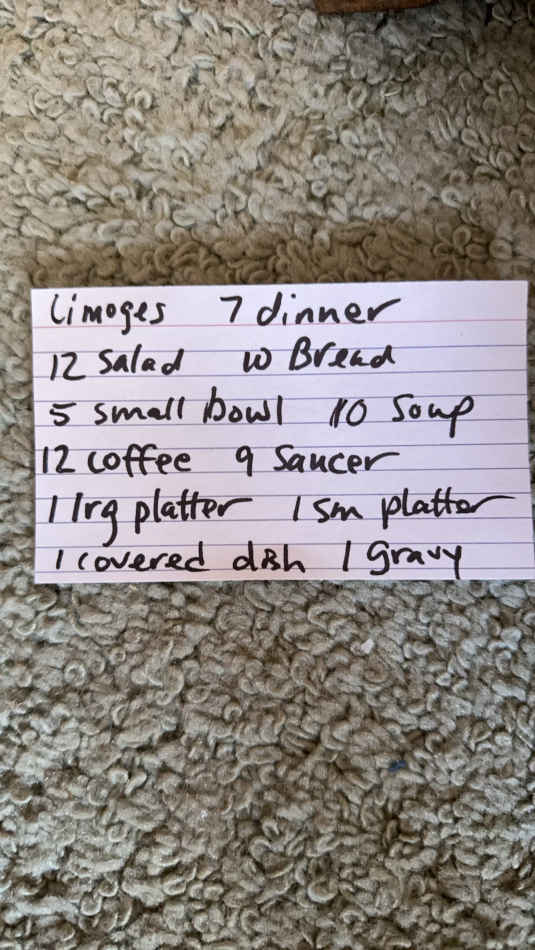 Limoges 7 dinner
12 Salad 10 Bread
5 small bowl 10 Soup
12 coffee 9 Saucer
1 lrg platter 1 sm platter
1 covered dish 1 gravy